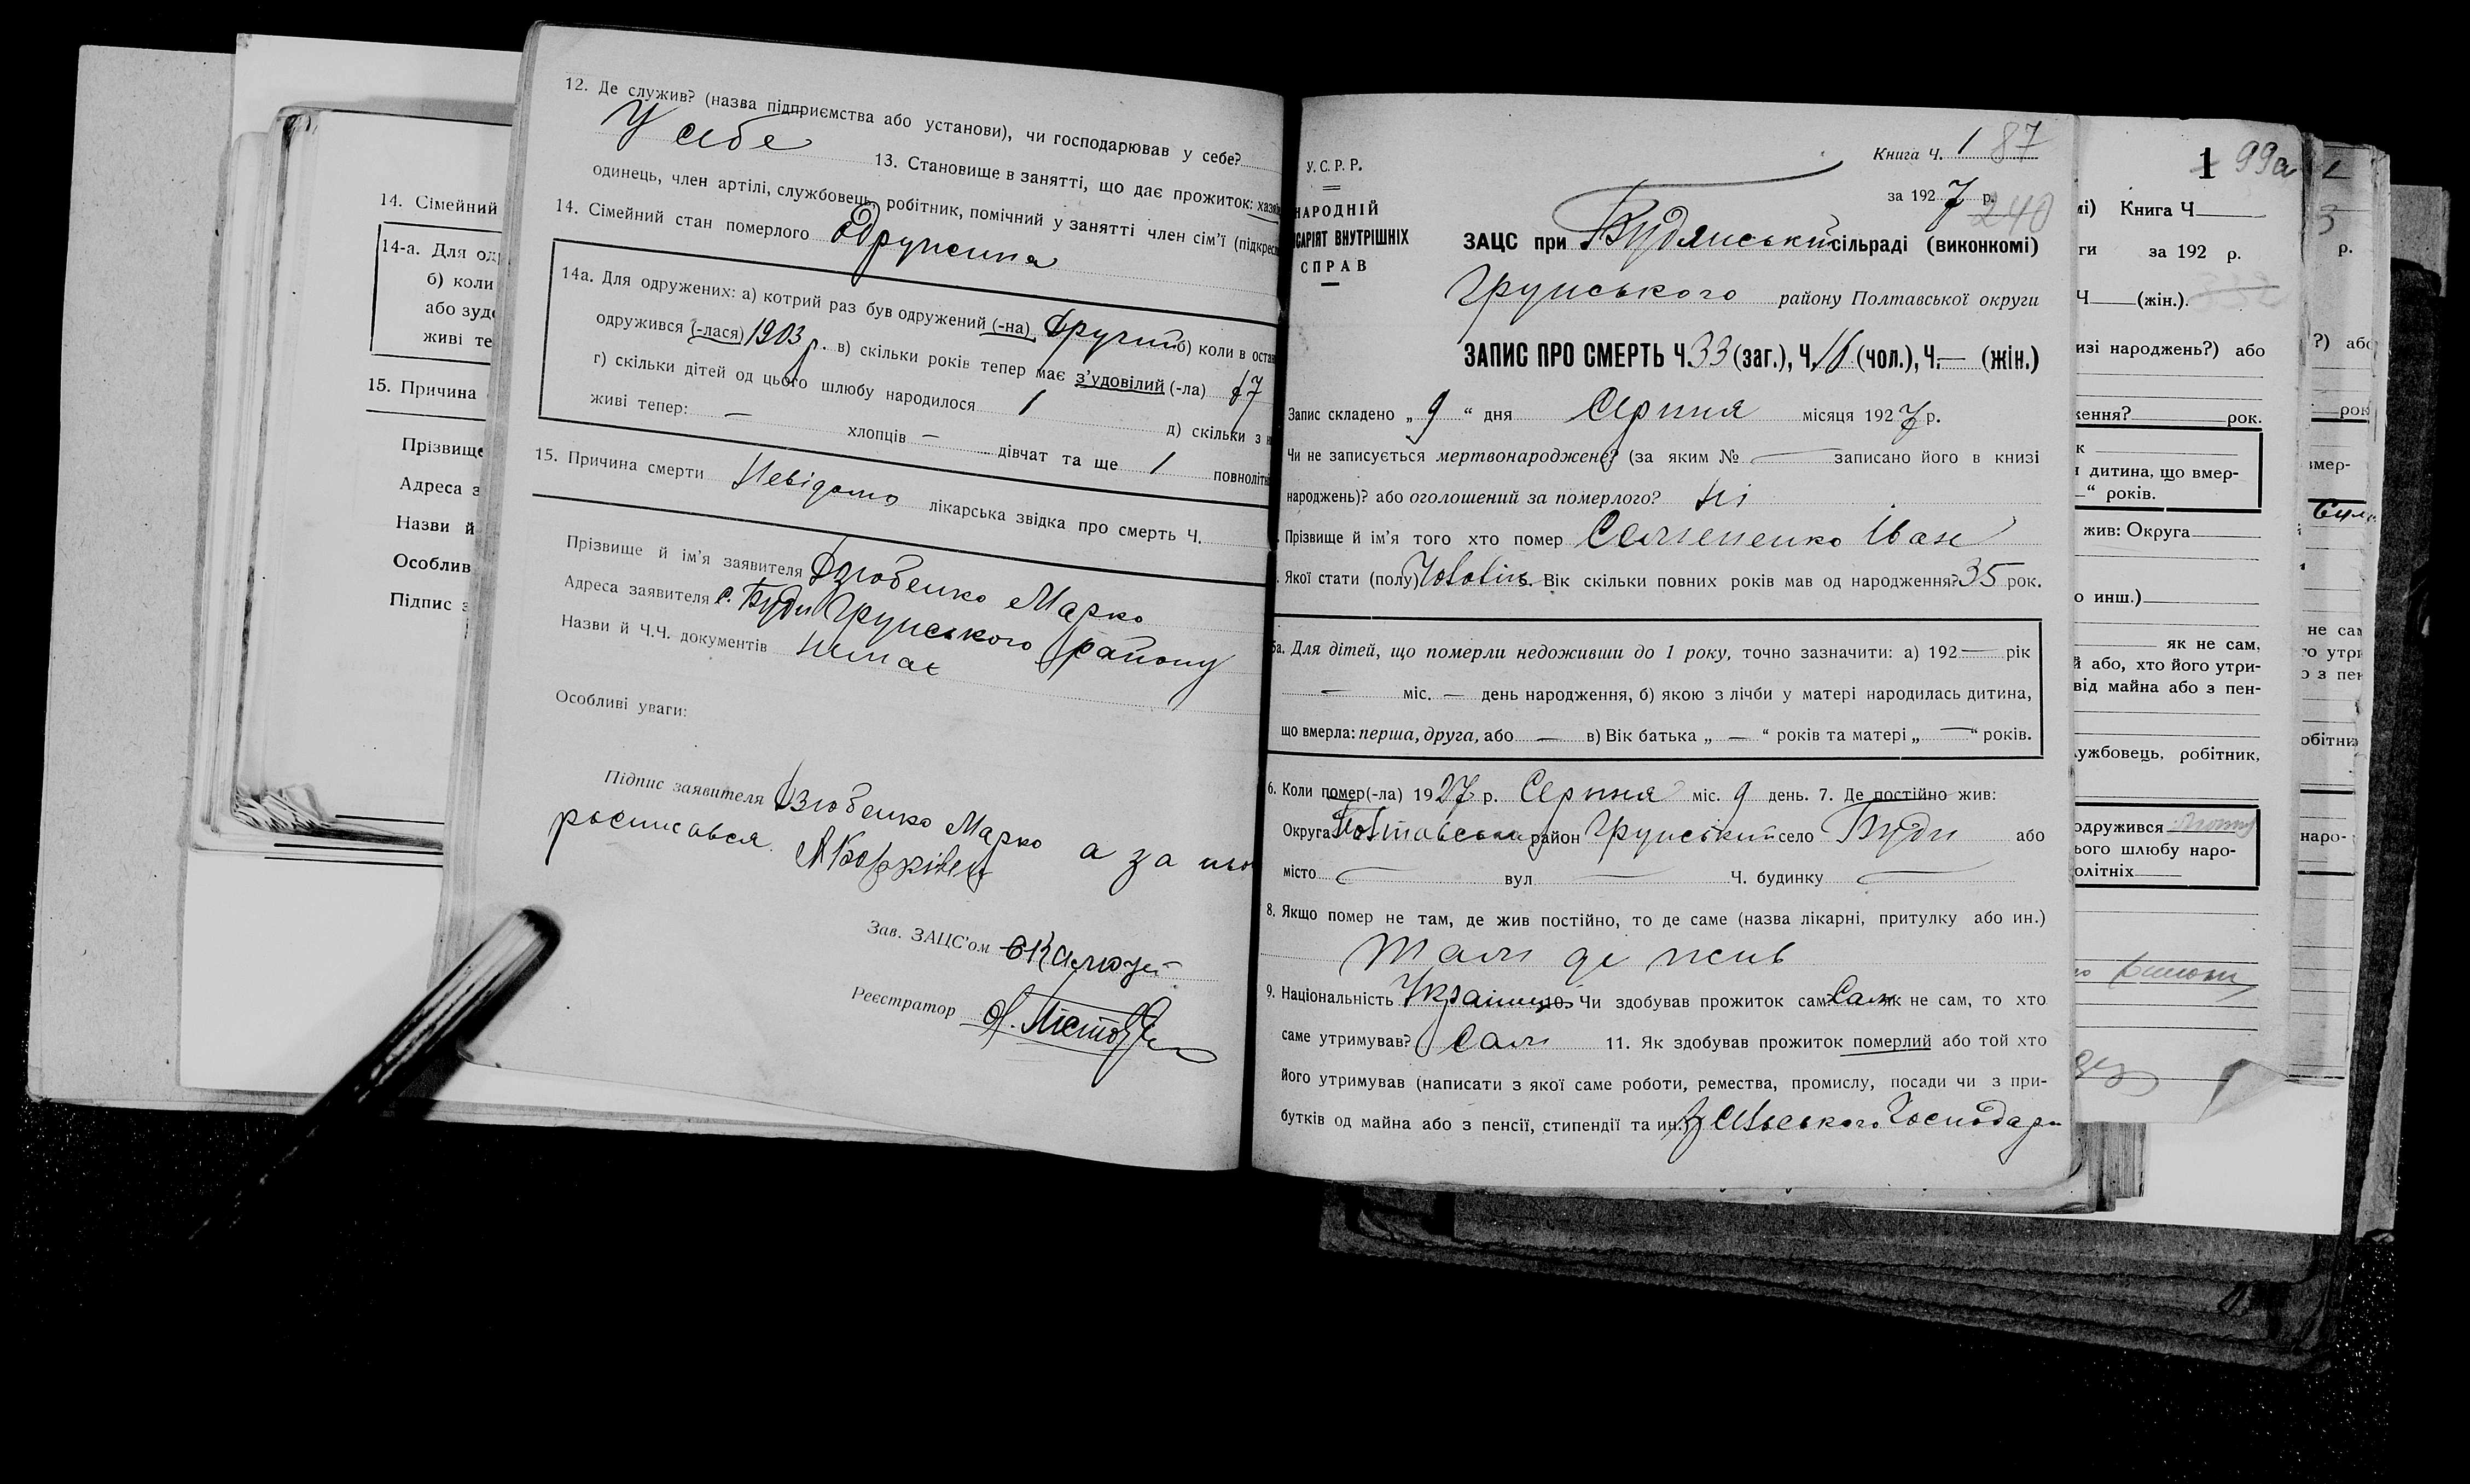 14. Сімейний
14-а. Для од
б) коли
або зуд
живі те
15. Причина
Прізвище
Адреса з
Назви й
Особлив
Підпис з
12. Де служив? (назва підприємства або установи), чи господарював у себе?
У себе 13. Становище в занятті, що дає прожиток: хазяїн
одинець, член артілі, службовець, робітник, помічний у занятті член сім'ї (підкрес
14. Сімейний стан померлого Одружина
14а. Для одружених: а) котрий раз був одружений (-на) другий б) коли в остан
одружився (-лася) 1903 р. в) скільки років тепер має з'удовілий (-ла) 47
г) скільки дітей од цього шлюбу народилося 1 д) скільки з н
живі тепер: — хлопців — дівчат та ще 1 повнолітн
15. Причина смерти Невідомо лікарська звідка про смерть Ч.
Прізвище й ім'я заявителя Дзюбенко Марко
Адреса заявителя с. Буди Грунського району
Назви й Ч.Ч. документів немає
Особливі уваги:
Підпис заявителя Дзюбенко Марко а за нього
росписався
Зав. ЗАЦС'ом
Реєстратор
У.С.Р.Р.
НАРОДНІЙ
ІСАРІЯТ ВНУТРІШНІХ
СПРАВ
Книга Ч. 1 87
за 1927 р. 240
ЗАЦС при Будянський сільраді (виконкомі)
Грунського району Полтавської округи
ЗАПИС ПРО СМЕРТЬ Ч. 33 (заг.), Ч. 16 (чол.), Ч. — (жін.)
Запис складено „9“ дня Серпня місяця 1927 р.
Чи не записується мертвонароджене? (за яким № — записано його в книзі
народжень)? або оголошений за померлого? Ні
Прізвище й ім'я того хто помер Семененко Іван
Якої стати (полу) Чоловік. Вік скільки повних років мав од народження? 35 рок.
5а. Для дітей, що померли недоживши до 1 року, точно зазначити: а) 192 — рік
— міс. — день народження, б) якою з лічби у матері народилась дитина,
що вмерла: перша, друга, або — в) Вік батька „ — “ років та матері „ — “ років.
6. Коли помер(-ла) 1927 р. Серпня міс. 9 день. 7. Де постійно жив:
Округа Полтавська район Грунський село Буди або
місто — вул — Ч. будинку —
8. Якщо помер не там, де жив постійно, то де саме (назва лікарні, притулку або ин.)
Там де жив
9. Національність Українець 10. Чи здобував прожиток сам Сам як не сам, то хто
саме утримував? Сам 11. Як здобував прожиток померлий або той хто
його утримував (написати з якої саме роботи, ремества, промислу, посади чи з при-
бутків од майна або з пенсії, стипендії та ин.) З сільського господари
1 99а
мі) Книга Ч
ги за 192 р.
Ч (жін.)
изі народжень?) або
ження? рок.
к
дитина, що вмер-
“ років.
жив: Округа
о инш.)
як не сам,
й або, хто його утри-
від майна або з пен-
ужбовець, робітник,
одружився
ього шлюбу наро-
олітніх
р.
?) або
рок
вмер-
не сам
го утри
о з пен
обітни
наро-